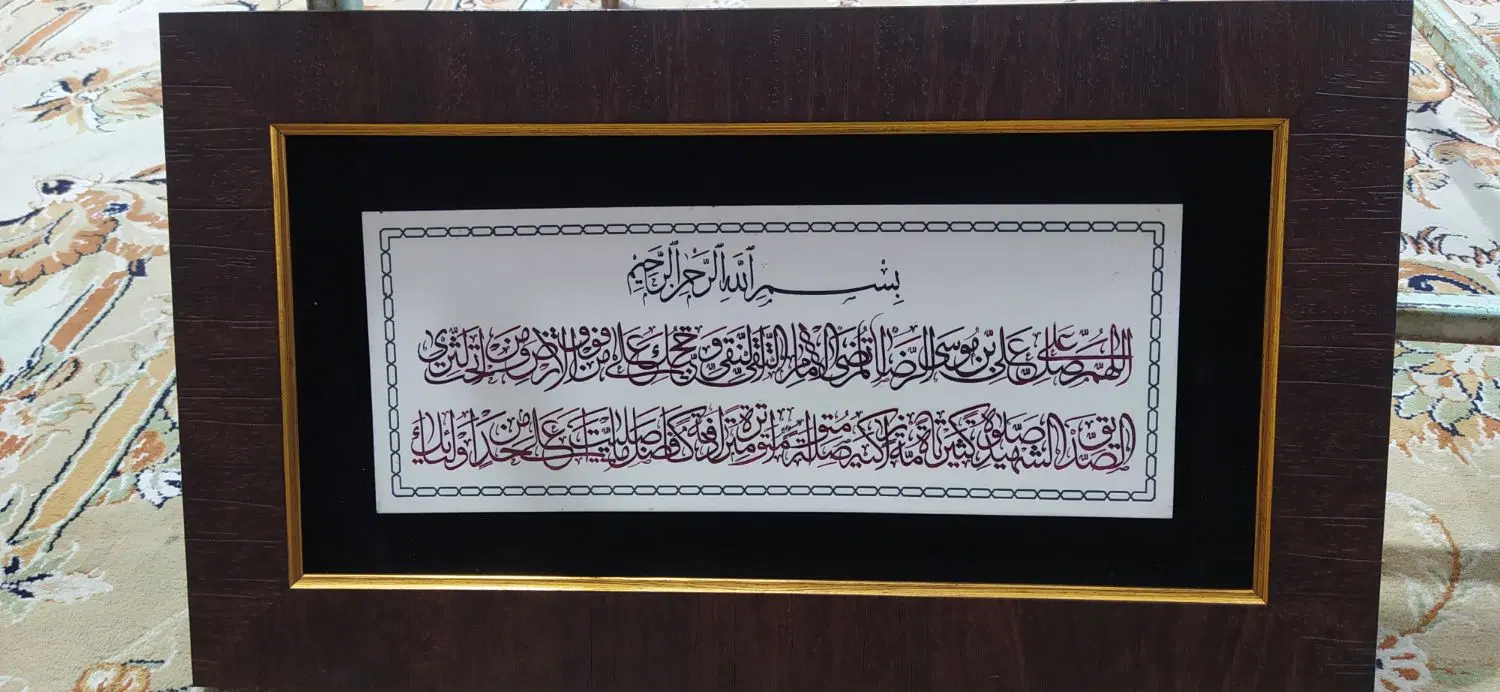 بِسْمِ ٱللَّهِ ٱلرَّحْمٰنِ ٱلرَّحِيمِ
اللهم صل علی علی بن موسی الرضا المرتضی الامام التقی النقی و حجتک علی من فوق الارض و من تحت الثری
الصدیق الشهید صلوة کثیرة تامة زاکیة متواصلة متواترة مترادفة کافضل ما صلیت علی احد من اولیائک